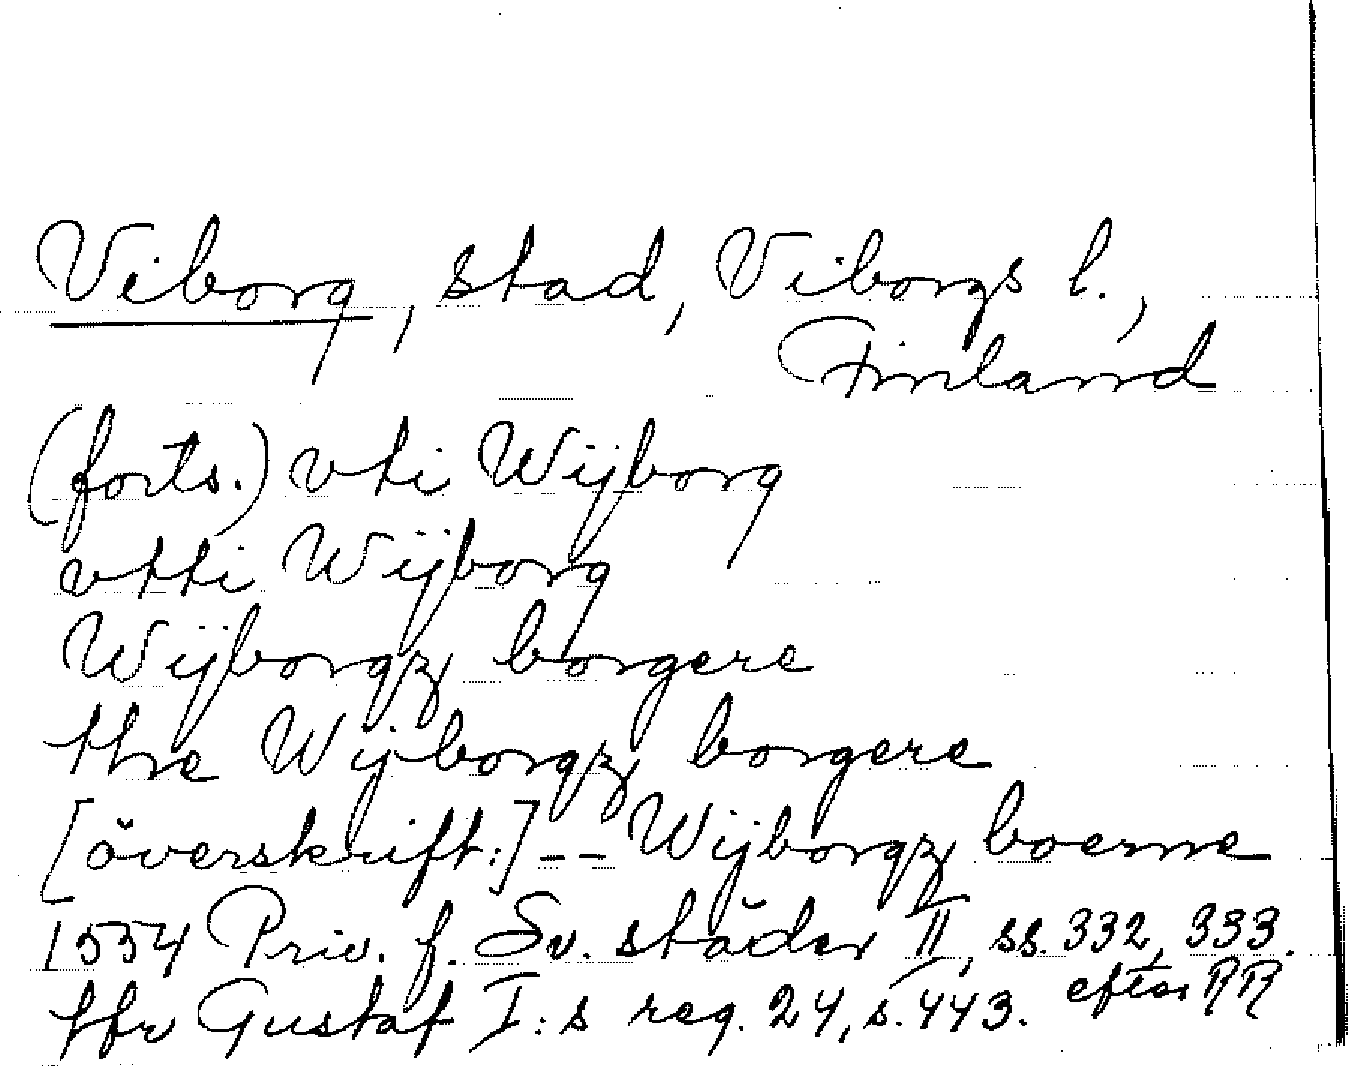 Viborg, stad, Viborgs l.,
Finland
(forts.) vti Wijborg
vtti Wijborg
Wijborgz borgere
thre Wijborgz borgere
[överskrift:] -- Wijborgz boerne
1554 Priv. f. Sv. städer II, ss. 332, 333.
efter RR
Jfr Gustaf I:s reg. 24, s. 443.